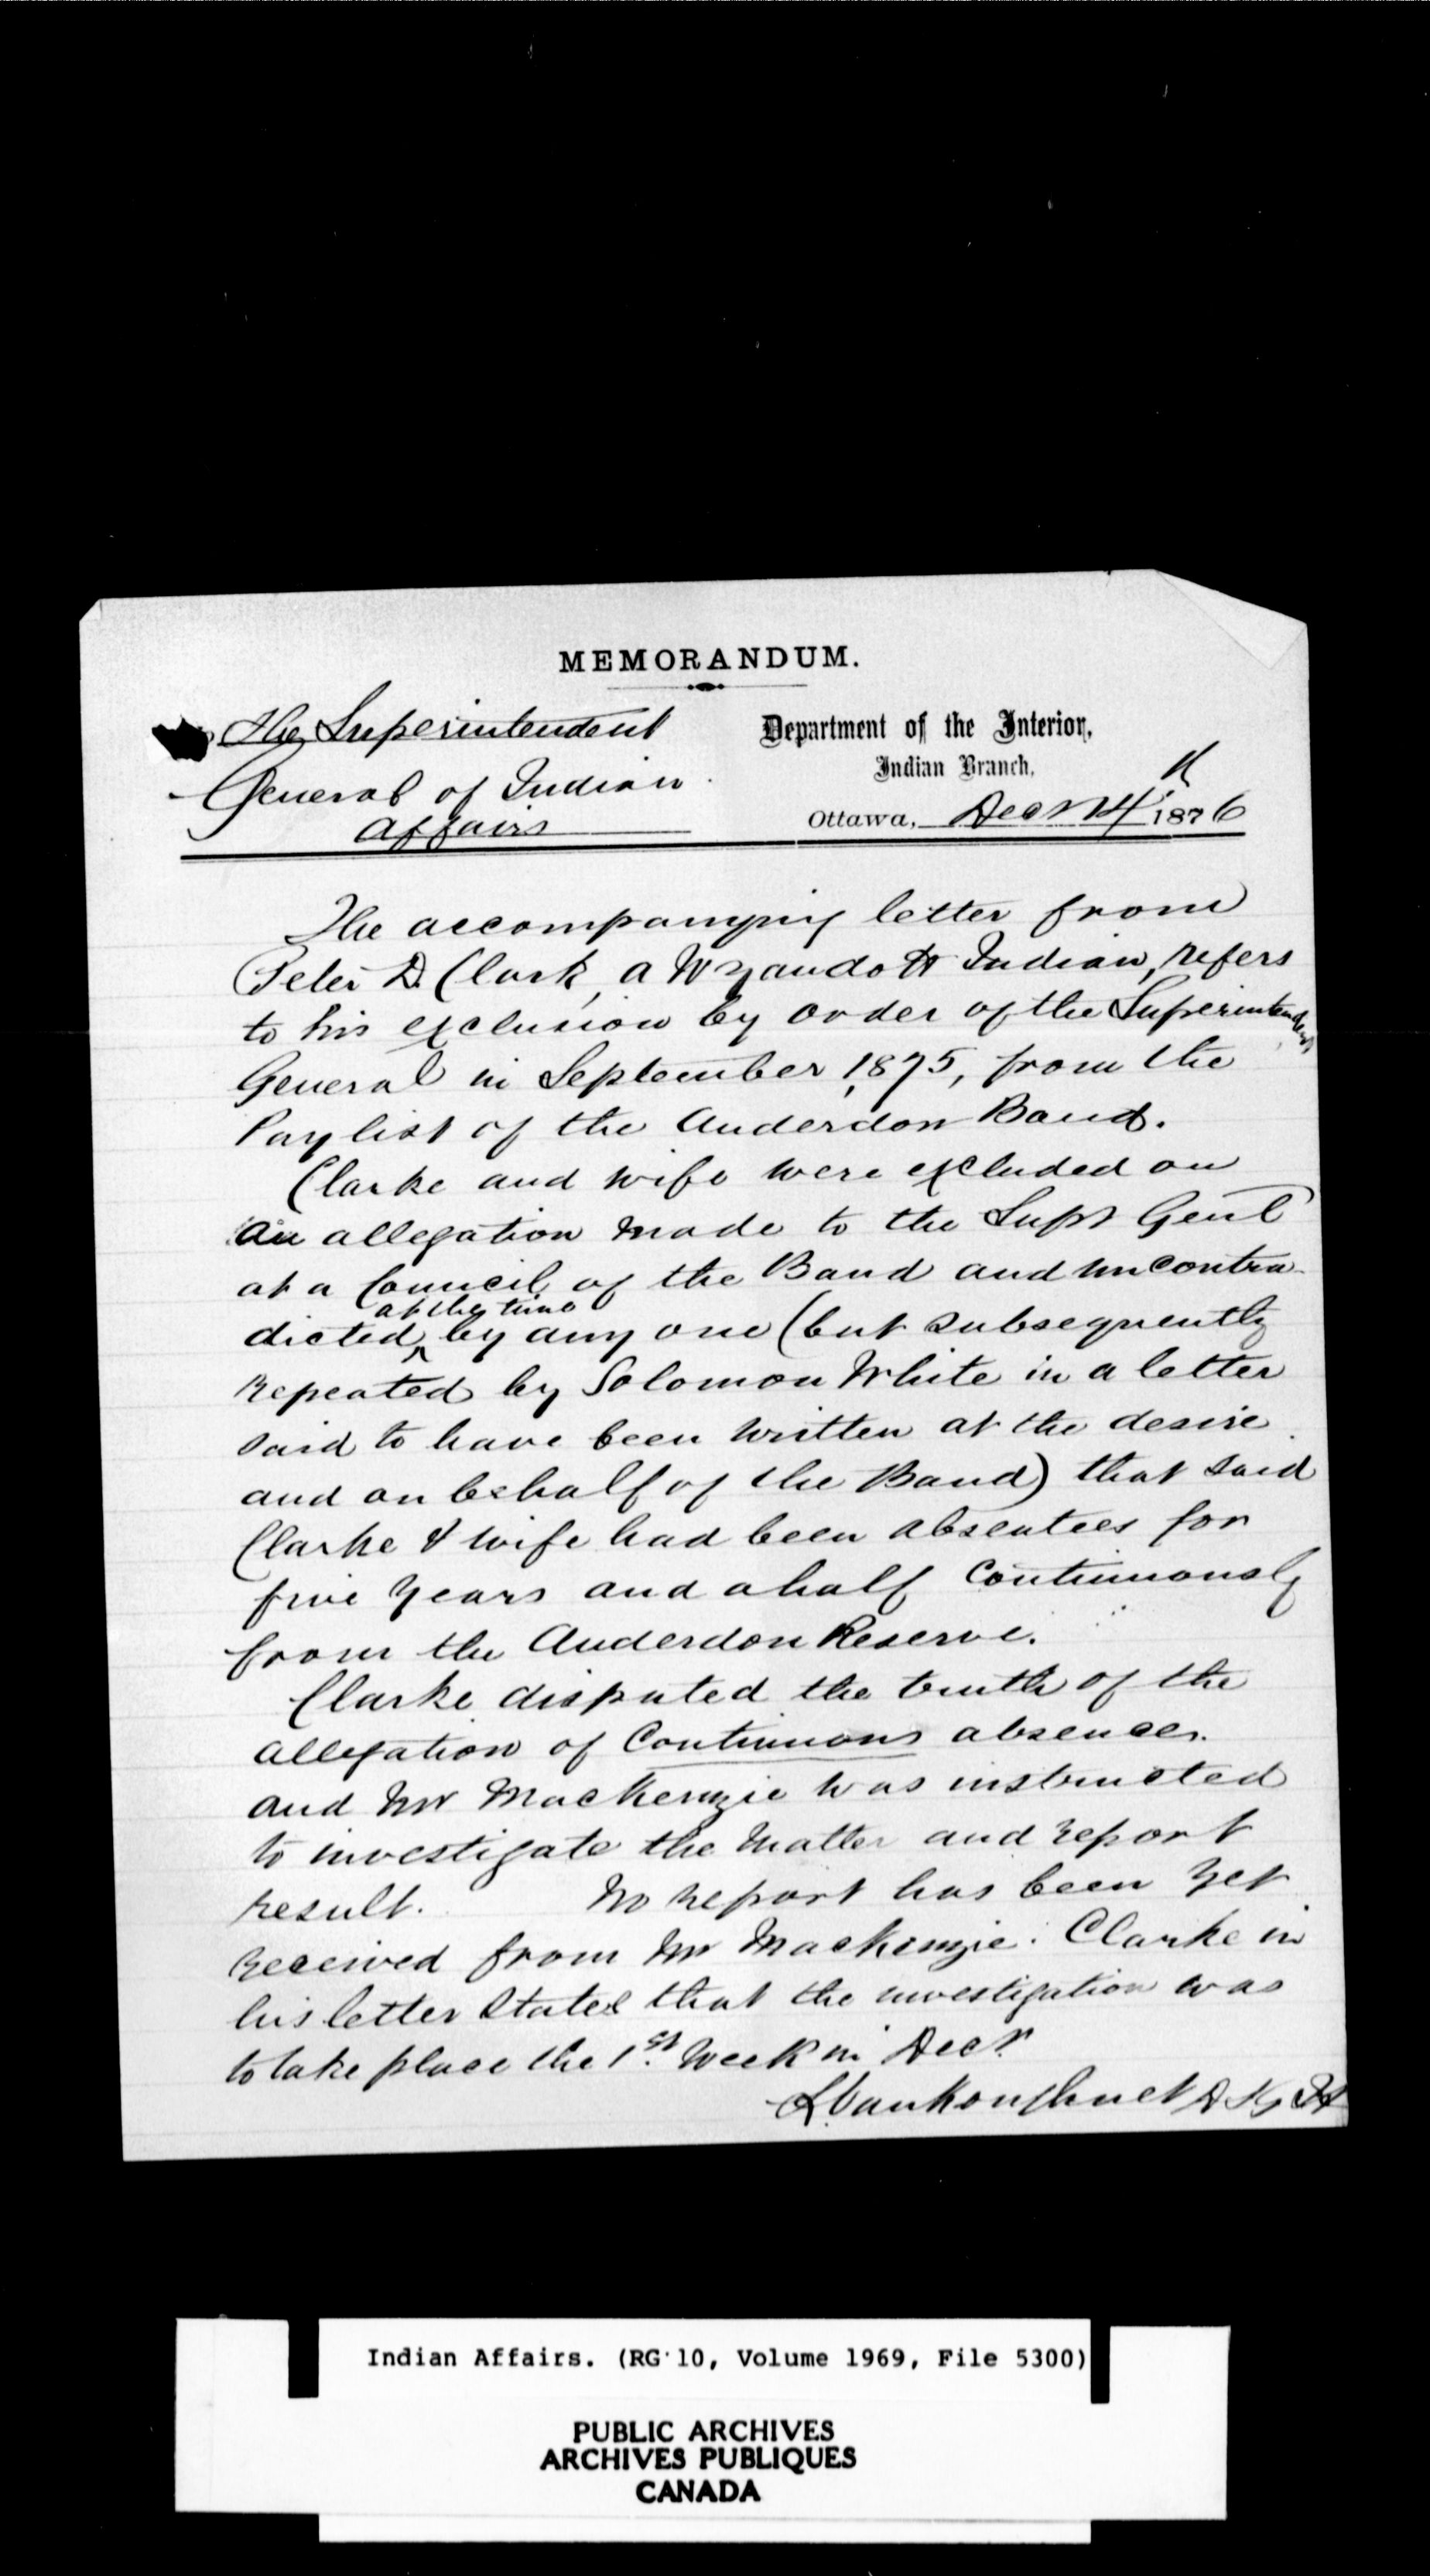 MEMORANDUM.
The Superintendent
General of Indian
Affairs
Department of the Interior,
Indian Branch,
Ottawa, Decr 14th 1876
The accompanying letter from
Peter D. Clark, a Wyandott Indian, refers
to his exclusion by order of the Superintendent
General in September, 1875, from the
Paylist of the Anderdon Band.
Clarke and wife were excluded on
an allegation made to the Supt Genl
at a Council of the Band and uncontra-
at the time
dicted by any one (but subsequently
repeated by Solomon White in a letter
said to have been written at the desire
and on behalf of the Band) that said
Clarke & wife had been absentees for
five years and a half continuously
from the Anderdon Reserve.
Clarke disputed the truth of the
allegation of continuous absence.
and Mr MacKenzie was instructed
to investigate the matter and report
result. No report has been yet
received from Mr MacKenzie. Clarke in
his letter states that the investigation was
to take place the 1st week in Decr.
L. Vankoughnet
Indian Affairs. (RG 10, Volume 1969, File 5300)
PUBLIC ARCHIVES
ARCHIVES PUBLIQUES
CANADA